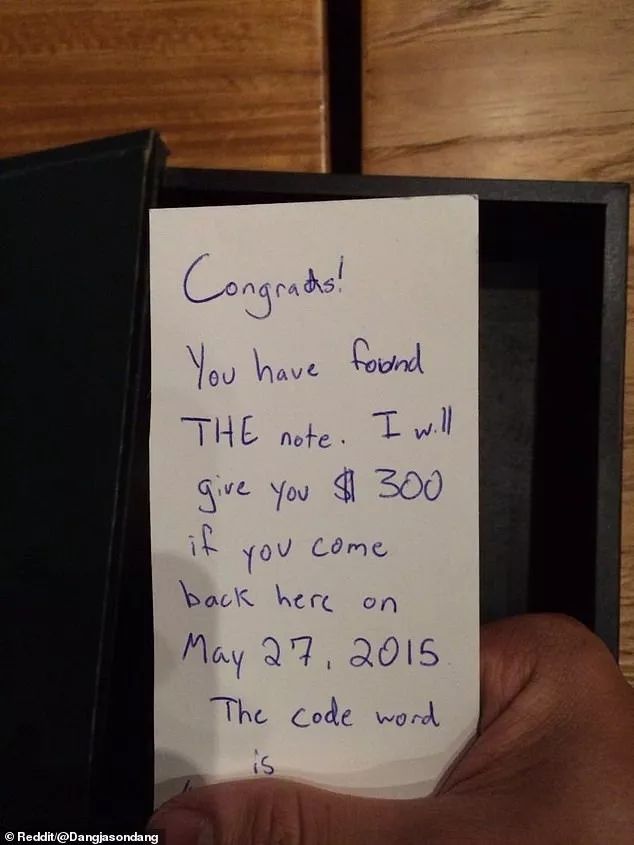 Congrats!
You have found
THE note. I will
give you $ 300
if you come
back here on
May 27, 2015
The code word
is
© Reddit/@Dangjasondang